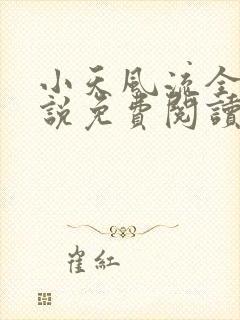 小天風流全
說免費閱讀
崔紅